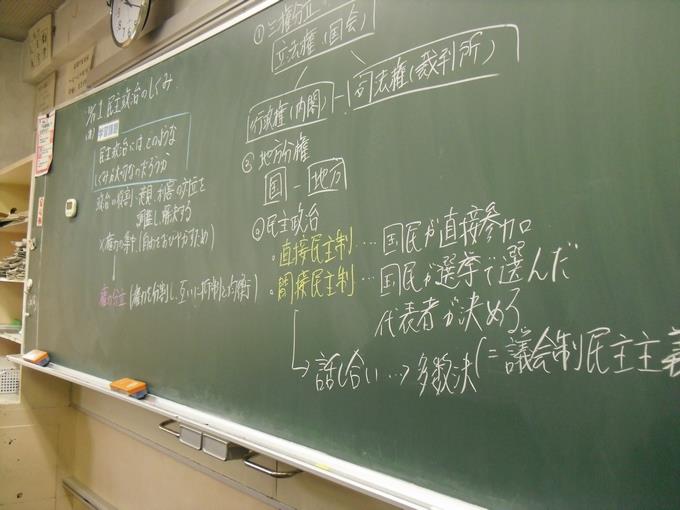 1 民主政治のしくみ
学習課題
民主政治には、このような
しくみが大切なのだろうか
政治の役割…意見、利害の対立を
調整し、解決する
権力の集中(自由をおびやかすため)
権力分立(権力を分割し、互いに抑制と均衡)
① 三権分立
立法権(国会)
行政権(内閣)
司法権(裁判所)
② 地方分権
国 - 地方
③ 民主政治
・直接民主制‥‥国民が直接参加
・間接民主制‥‥国民が選挙で選んだ
代表者が決める。
話し合い…→多数決(=議会制民主主義